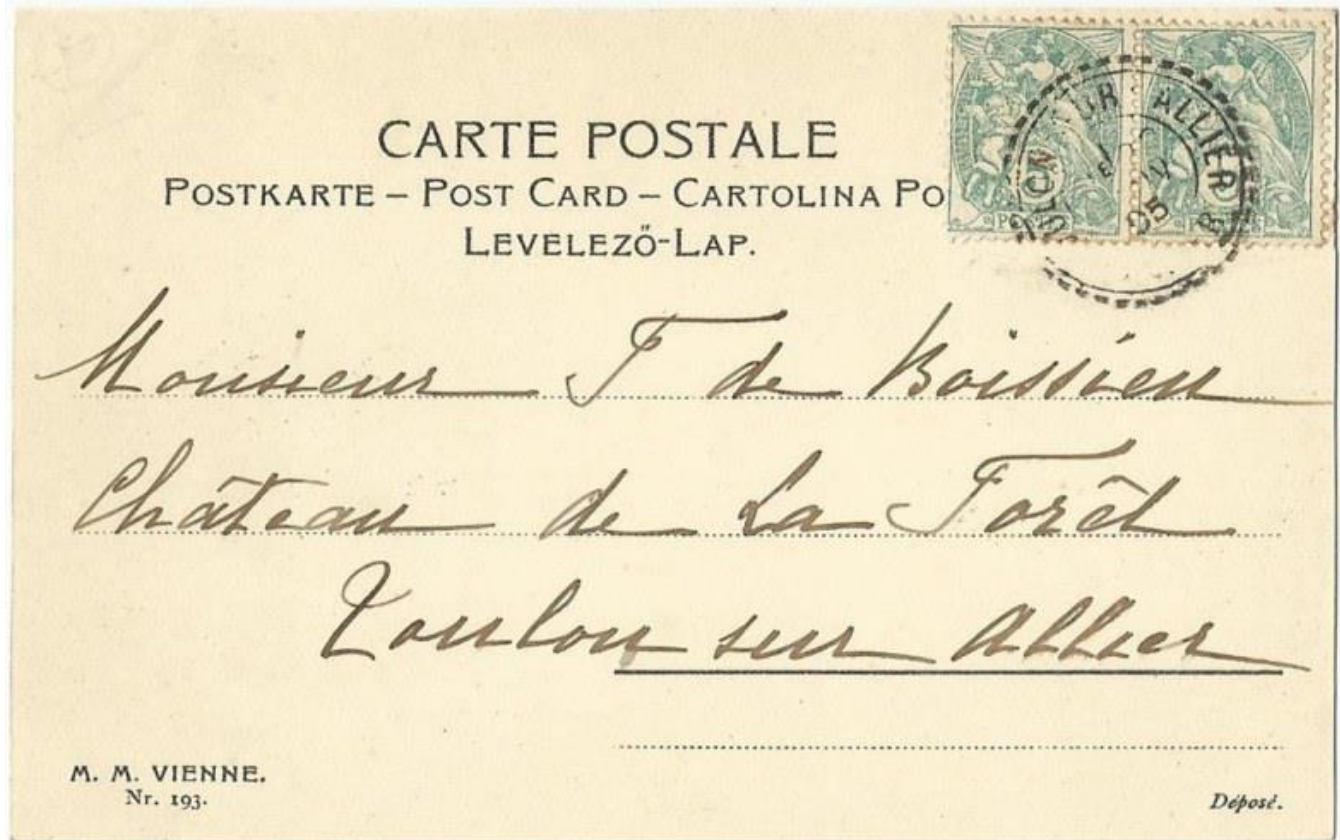 CARTE POSTALE
POSTKARTE – POST CARD – CARTOLINA PO
LEVELEZŐ-LAP.
SUR ALLIER
05
Monsieur F de Boissieu
Château de La Forêt
Toulon sur Allier
M. M. VIENNE.
Nr. 193.
Déposé.